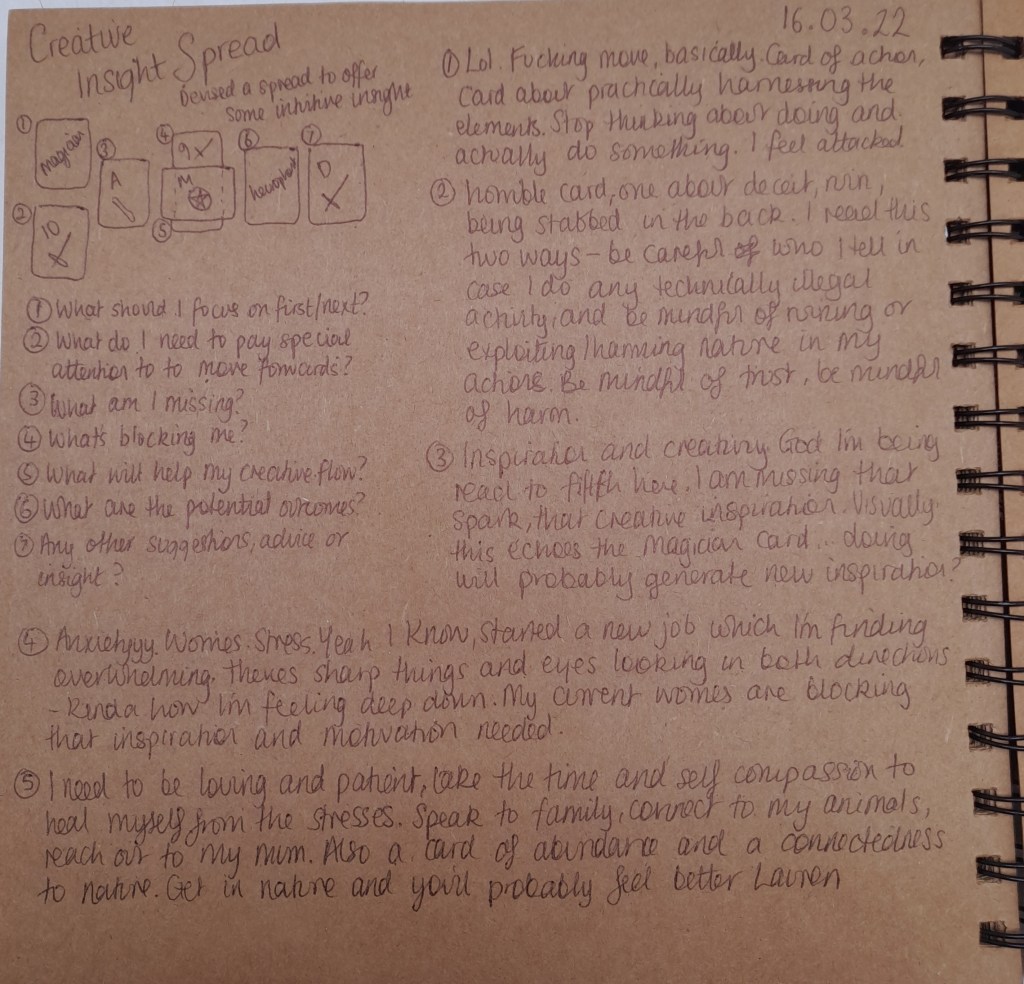 16.03.22
Creative
Insight Spread
Devised a spread to offer
some intuitive insight
①
magician
②
10
③
A
④
9
M
⑤
⑥
heirophant
⑦
D
① What should I focus on first/next?
② What do I need to pay special
attention to to move forwards?
③ What am I missing?
④ What's blocking me?
⑤ What will help my creative flow?
⑥ What are the potential outcomes?
⑦ Any other suggestions, advice or
insight?
① Lol. Fucking move, basically. Card of action,
Card about practically harnessing the
elements. Stop thinking about doing and
actually do something. I feel attacked
② horrible card, one about deceit, ruin,
being stabbed in the back. I read this
two ways - be careful of who I tell in
case I do any technically illegal
activity, and be mindful of ruining or
exploiting/harming nature in my
actions. Be mindful of trust, be mindful
of harm.
③ Inspiration and creativity. God I'm being
read to filth here. I am missing that
spark, that creative inspiration. Visually
this echoes the Magician card... doing
will probably generate new inspiration?
④ Anxietyyy. Worries. Stress. Yeah I know, started a new job which I'm finding
overwhelming. theres sharp things and eyes looking in both directions
- kinda how I'm feeling deep down. My current worries are blocking
that inspiration and motivation needed.
⑤ I need to be loving and patient, take the time and self compassion to
heal myself from the stresses. Speak to family, connect to my animals,
reach out to my mum. Also a card of abundance and a connectedness
to nature. Get in nature and you'll probably feel better Lauren